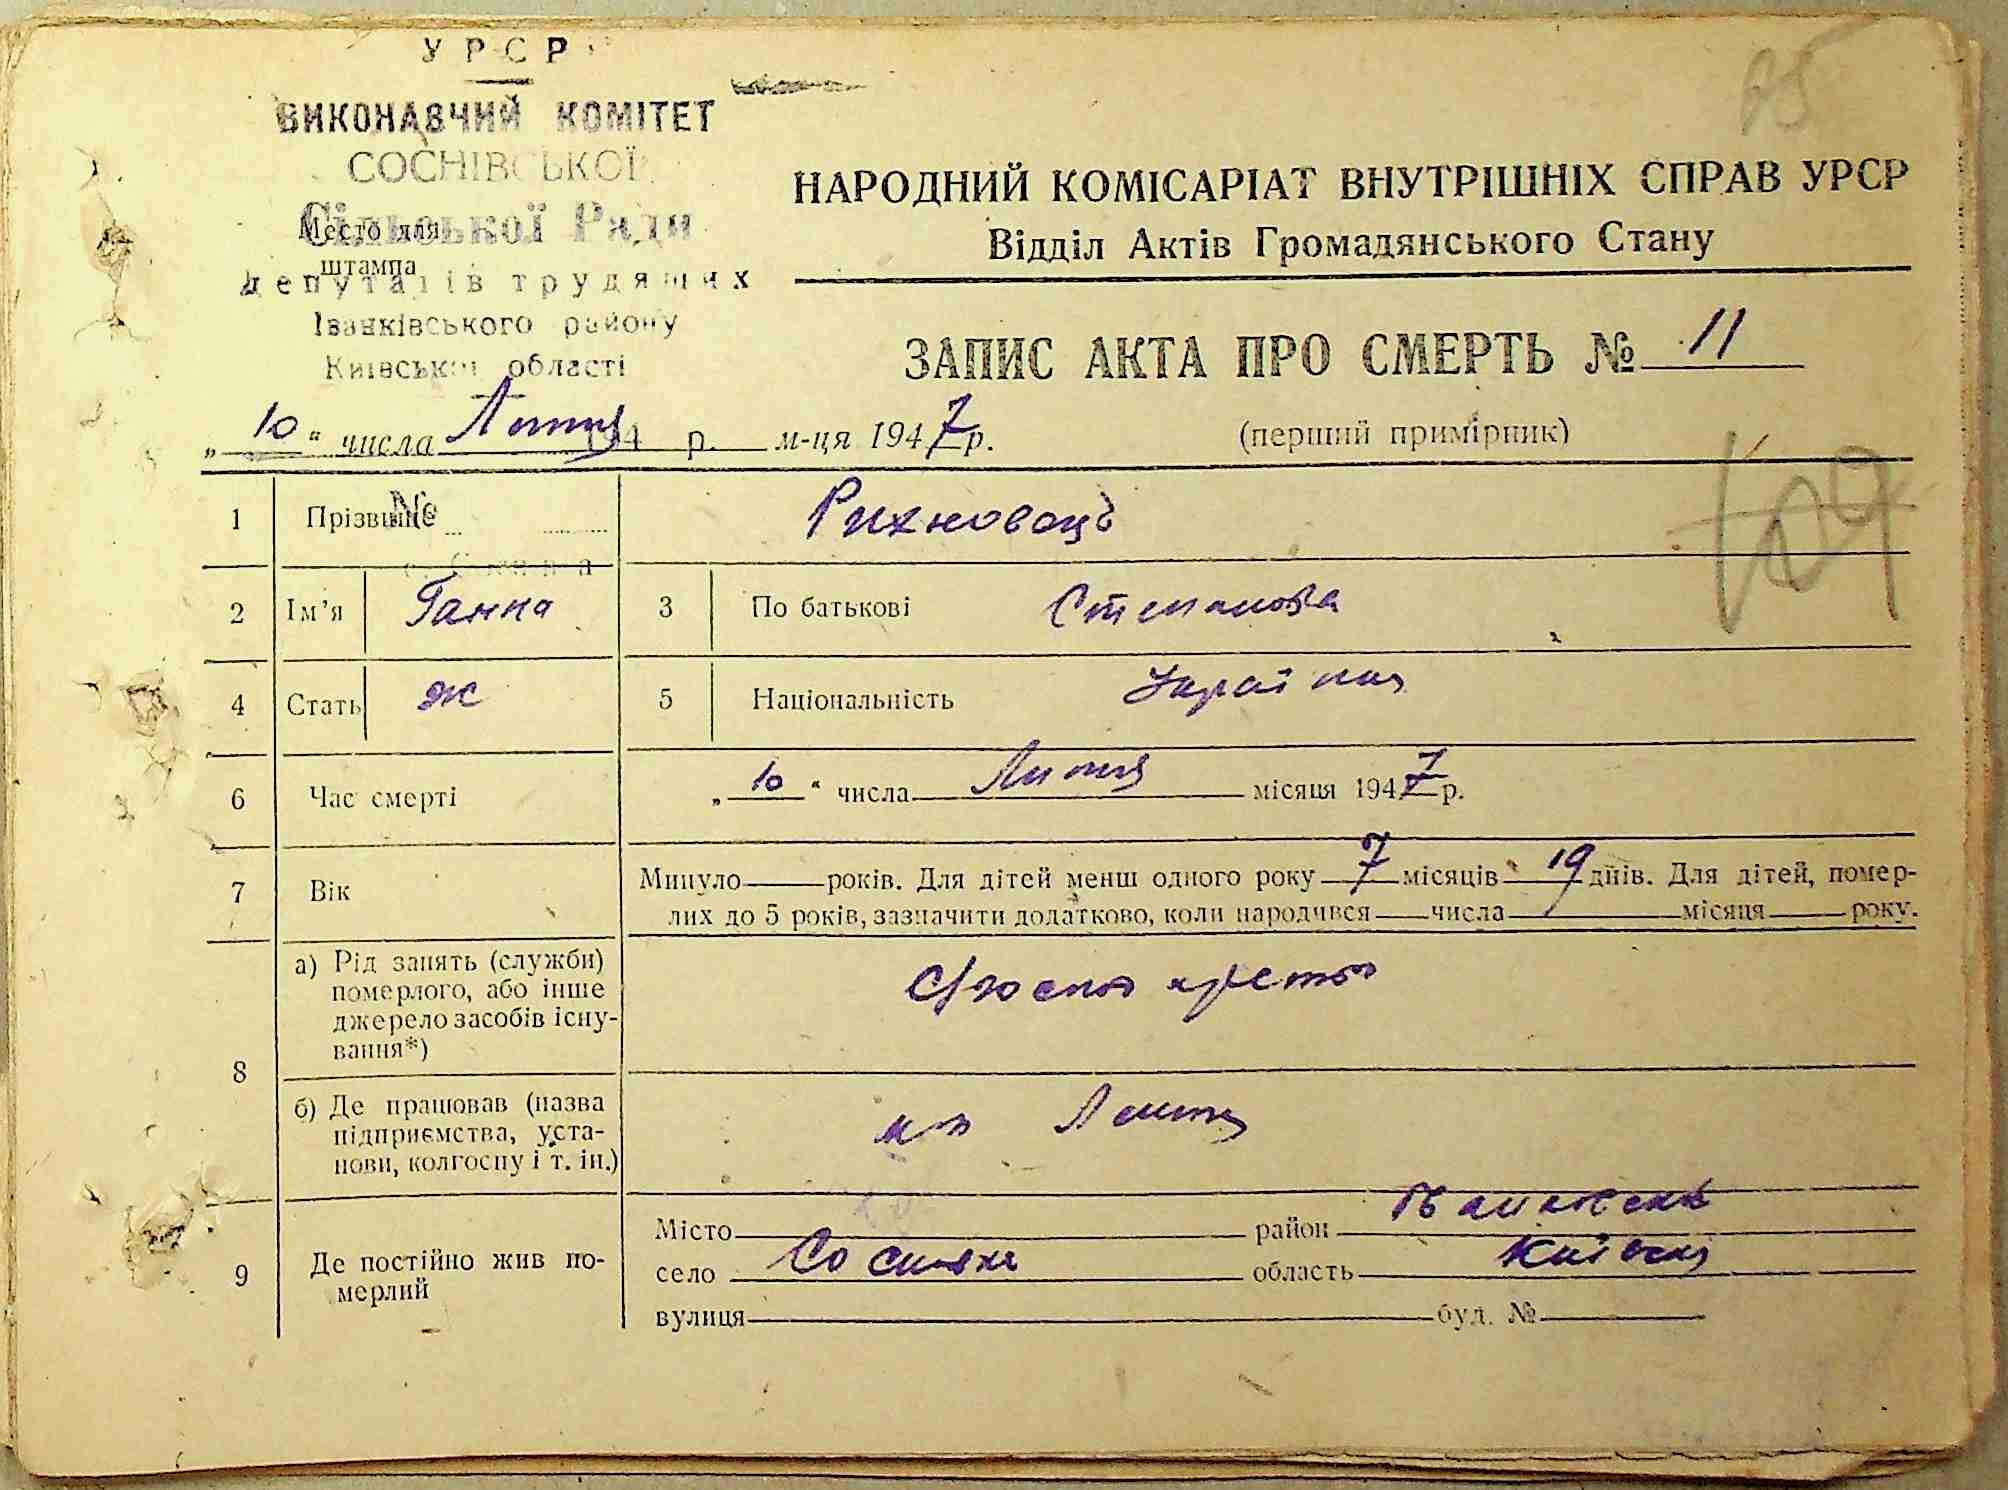 УРСР
ВИКОНАВЧИЙ КОМІТЕТ
СОСНІВСЬКОЇ
Сільської Ради
Место для
штампа
депутатів трудящих
Іванківського району
Київської області
65
НАРОДНИЙ КОМІСАРІАТ ВНУТРІШНІХ СПРАВ УРСР
Відділ Актів Громадянського Стану
ЗАПИС АКТА ПРО СМЕРТЬ № 11
„10“ числа Липня 194 р. м-ця 1947 р.
(перший примірник)
1 Прізвище № Рихновець
109
2 Ім’я Ганна 3 По батькові Степанова
4 Стать ж 5 Національність Українка
6 Час смерті „10“ числа Липня місяця 1947 р.
7 Вік Минуло років. Для дітей менш одного року 7 місяців 19 днів. Для дітей, помер-
лих до 5 років, зазначити додатково, коли народився числа місяця року.
8 а) Рід занять (служби)
померлого, або інше
джерело засобів існу-
вання*)
б) Де працював (назва
підприємства, уста-
нови, колгоспу і т. ін.)
9 Де постійно жив по-
мерлий
Місто район
село область Київськ
вулиця буд. №